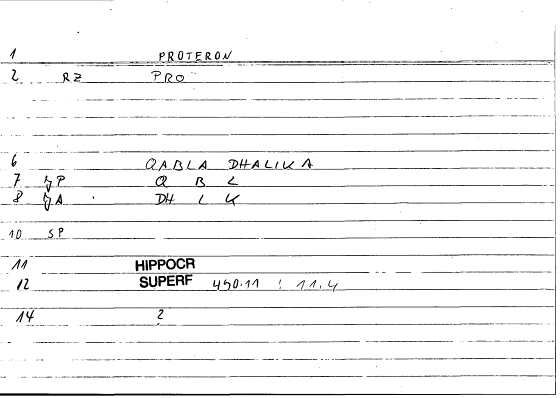 1 PROTERON
2 RZ PRO
6 QABLA DHALIKA
7 P Q B L
8 A DH L K
10 SP
11 HIPPOCR
12 SUPERF 450.11 : 11.4
14 2